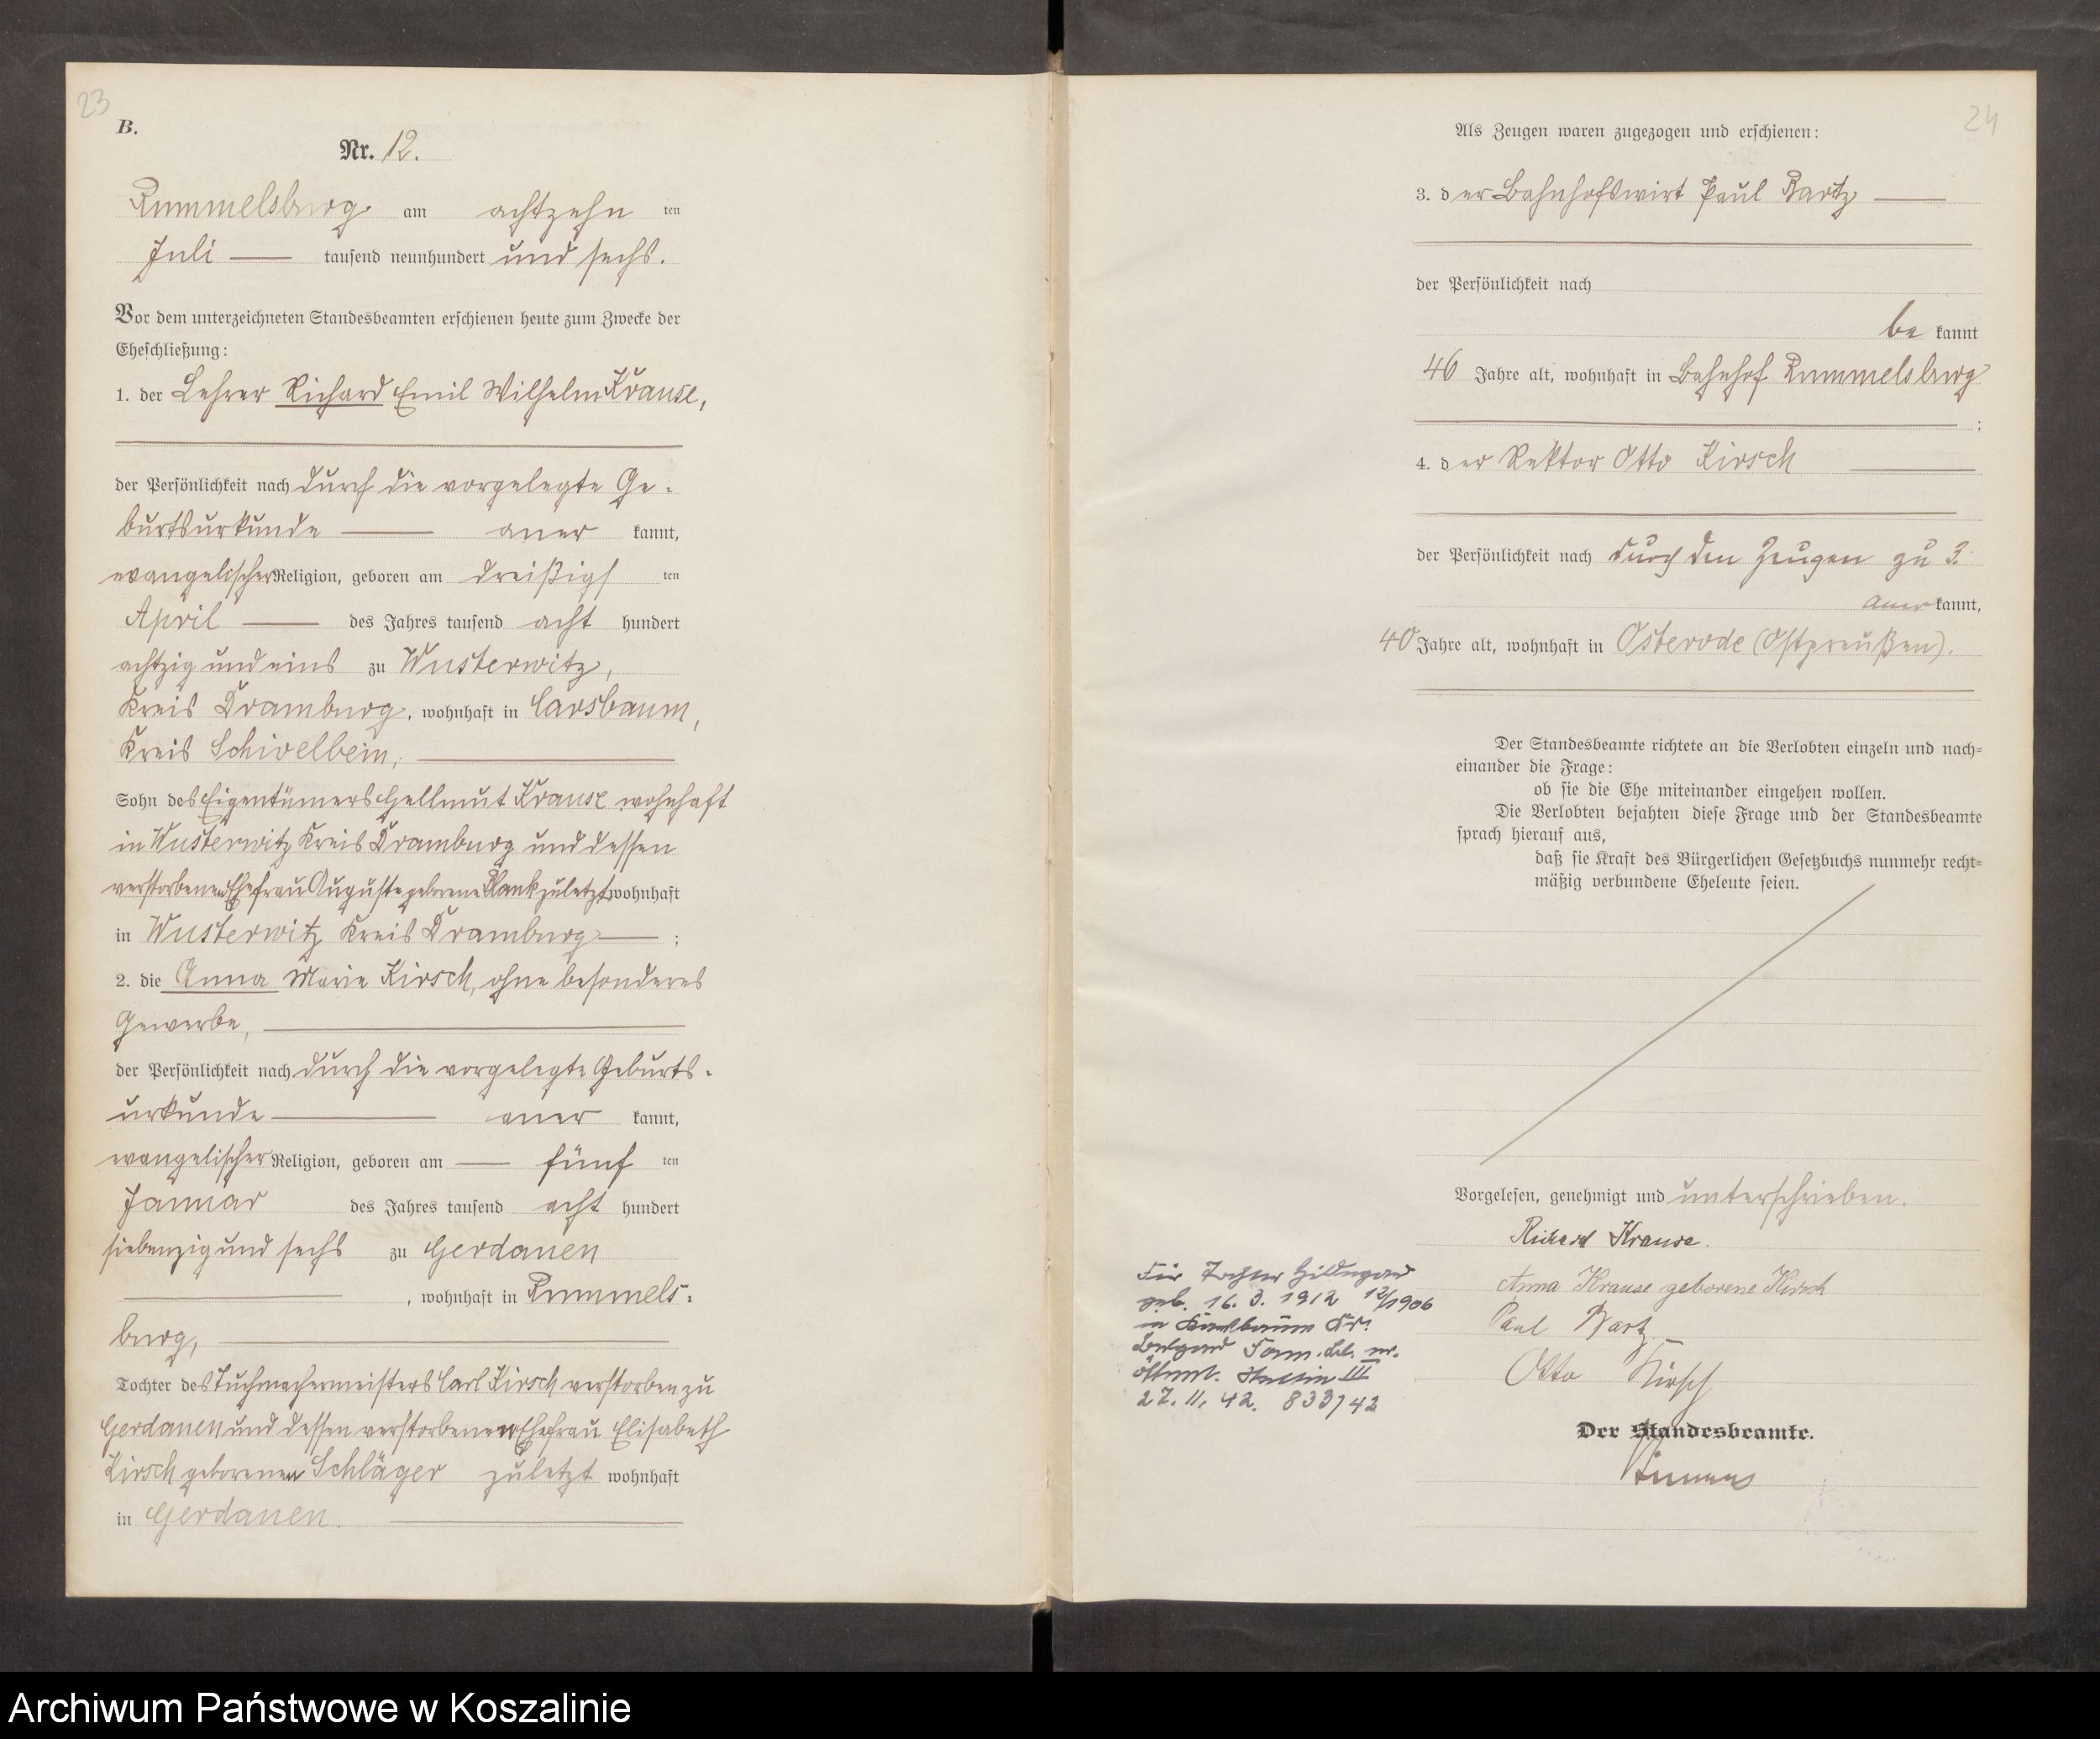 23
B.
Nr. 12.
Rummelsburg am achtzehn ten
Juli — tausend neunhundert und sechs.
Vor dem unterzeichneten Standesbeamten erschienen heute zum Zwecke der
Eheschließung:
1. der Lehrer Richard Emil Wilhelm Krause,
der Persönlichkeit nach durch die vorgelegte Ge-
burtsurkunde — aner kannt,
evangelischer Religion, geboren am dreißigs ten
April — des Jahres tausend acht hundert
achtzig und eins zu Wusterwitz,
Kreis Dramburg, wohnhaft in Carsbaum,
Kreis Schivelbein, —
Sohn des Eigentümers Hellmut Krause wohnhaft
in Wusterwitz Kreis Dramburg und dessen
verstorbenen Ehefrau Auguste geborene Plank zuletzt wohnhaft
in Wusterwitz Kreis Dramburg — ;
2. die Anna Marie Kirsch, ohne besonderes
Gewerbe, —
der Persönlichkeit nach durch die vorgelegte Geburts-
urkunde — aner kannt,
evangelischer Religion, geboren am — fünf ten
Januar des Jahres tausend acht hundert
siebenzig und sechs zu Gerdauen
— , wohnhaft in Rummels-
burg, —
Tochter des Tuchmachermeisters Carl Kirsch verstorben zu
Gerdauen und dessen verstorbenen Ehefrau Elisabeth
Kirsch geborenen Schläger zuletzt wohnhaft
in Gerdauen. —
24
Als Zeugen waren zugezogen und erschienen:
3. der Bahnhofswirt Paul Bartz —
der Persönlichkeit nach
be kannt
46 Jahre alt, wohnhaft in Bahnhof Rummelsburg
;
4. der Rektor Otto Kirsch —
der Persönlichkeit nach durch den Zeugen zu 3.
aner kannt,
40 Jahre alt, wohnhaft in Osterode (Ostpreußen).
Der Standesbeamte richtete an die Verlobten einzeln und nach-
einander die Frage:
ob sie die Ehe miteinander eingehen wollen.
Die Verlobten bejahten diese Frage und der Standesbeamte
sprach hierauf aus,
daß sie Kraft des Bürgerlichen Gesetzbuchs nunmehr recht-
mäßig verbundene Eheleute seien.
Vorgelesen, genehmigt und unterschrieben.
Richard Krause.
Anna Krause geborene Kirsch
Paul Bartz.
Otto Kirsch
Der Standesbeamte.
Für Tochter Hildegard
geb. 16. 3. 1912 12/1906
in Kr.
Belgard
Stettin III
27. 11. 42. 833/42
Archiwum Państwowe w Koszalinie